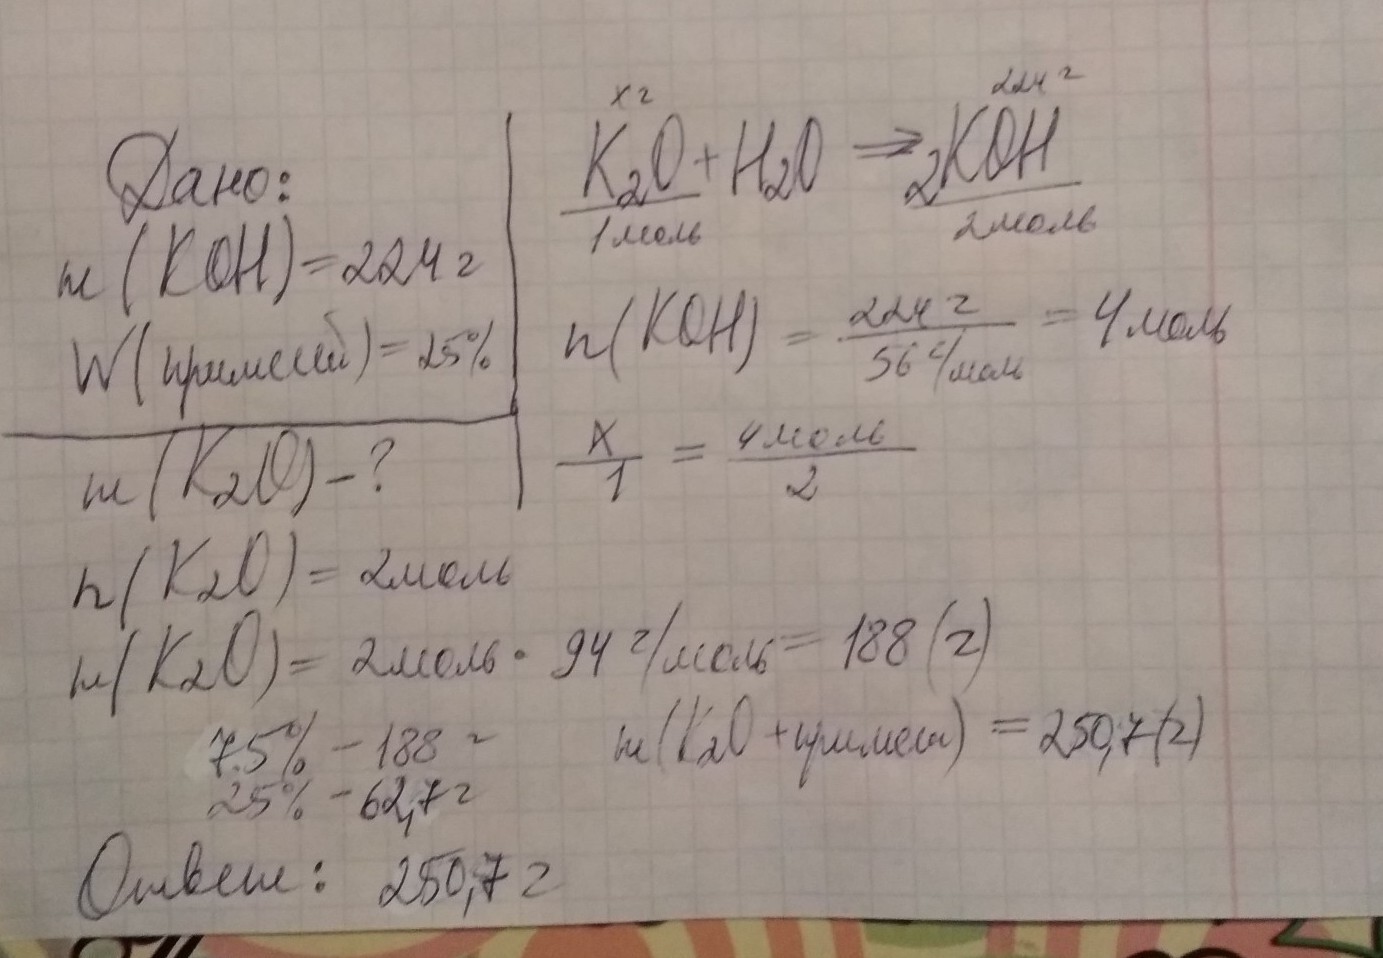 Дано:
m(KOH)=224г
W(примесей)=25%
m(K₂O)-?
хг 224г
K₂O+H₂O ⇒ 2KOH
1моль 2моль
n(KOH) = 224г / 56г/моль = 4моль
x/1 = 4моль/2
n(K₂O)=2моль
m(K₂O)= 2моль · 94г/моль= 188(г)
75% - 188г
25% - 62,7г
m(K₂O+примеси) = 250,7(г)
Ответ: 250,7г